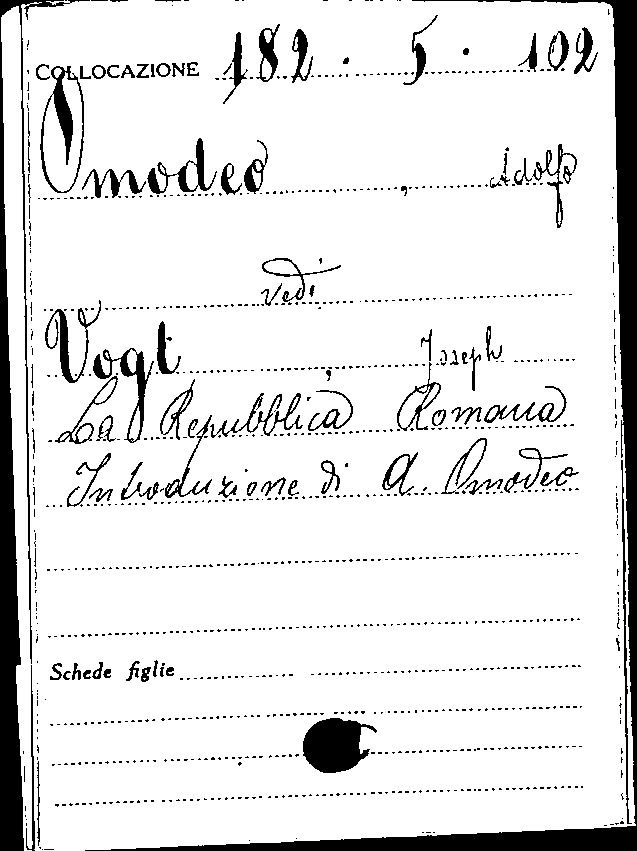 COLLOCAZIONE 182 . 5 . 102
Omodeo , Adolfo
vedi
Vogt , Joseph
La Repubblica Romana
Introduzione di A. Omodeo
Schede figlie